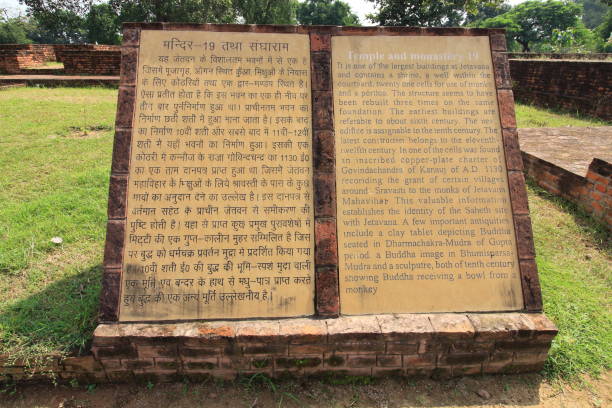 मन्दिर–19 तथा संघाराम
यह जेतवन के विशालतम भवनों में से एक है
जिसमें पूजागृह, आँगन स्थित कुँआ भिक्षुओं के निवास
के लिए कोठरियाँ तथा एक द्वार–मण्डप स्थित हैं।
ऐसा प्रतीत होता है कि इस भवन का एक ही नींव पर
तीन बार पुनर्निर्माण हुआ था। प्राचीनतम भवन का
निर्माण छठी शती में हुआ माना जाता है। इसके बाद
का निर्माण 10वीं शती और सबसे बाद में 11वीं–12वीं
शती में यहाँ भवनों का निर्माण हुआ। इसकी एक
कोठरी में कन्नौज के राजा गोविन्दचन्द्र का 1130 ई0
का एक ताम्र दानपत्र प्राप्त हुआ था जिसमें जेतवन
महाविहार के भिक्षुओं के लिये श्रावस्ती के पास के कुछ
गावों का अनुदान देने का उल्लेख है। इस दानपत्र से
वर्तमान सहेट के प्राचीन जेतवन से समीकरण की
पुष्टि होती है। यहाँ से प्राप्त कुछ प्रमुख पुरावशेषों में
मिट्टी की एक गुप्त–कालीन मुहर सम्मिलित है जिस
पर बुद्ध को धर्मचक्र प्रवर्तन मुद्रा में प्रदर्शित किया गया
है। 10वीं शती ई0 की बुद्ध की भूमि–स्पर्श मुद्रा वाली
एक मूर्ति एवं बन्दर के हाथ से मधु–पात्र प्राप्त करते
हुये बुद्ध की एक अन्य मूर्ति उल्लेखनीय है।
Temple and monastery 19
It is one of the largest buildings at Jetavana
and contains a shrine, a well within the
courtyard, twenty one cells for use of monks
and a portico. The structure seems to have
been rebuilt three times on the same
foundation. The earliest buildings are
referable to about sixth century. The next
edifice is assignable to the tenth century. The
latest construction belongs to the eleventh
twelfth century. In one of the cells was found
an inscribed copper-plate charter of
Govindachandra of Kanauj of A.D. 1130
recording the grant of certain villages
around Sravasti to the monks of Jetavana
Mahavihar. This valuable information
establishes the identity of the Saheth site
with Jetavana. A few important antiquities
include a clay tablet depicting Buddha
seated in Dharmachakra-Mudra of Gupta
period. a Buddha image in Bhumisparsa
Mudra and a sculpture, both of tenth century
showing Buddha receiving a bowl from a
monkey